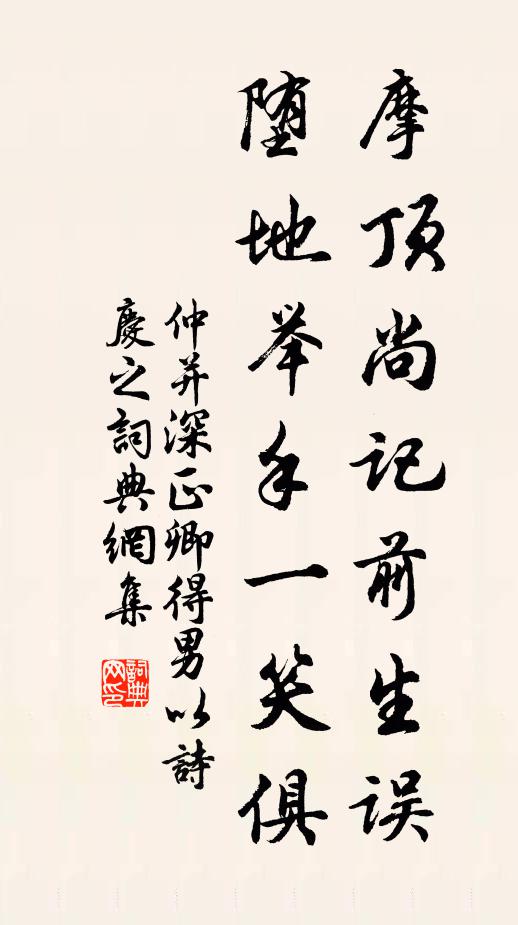 摩顶尚记前生误
堕地举手一笑俱
仲并深正卿得男以詩
慶之詞典網集
詞典网印